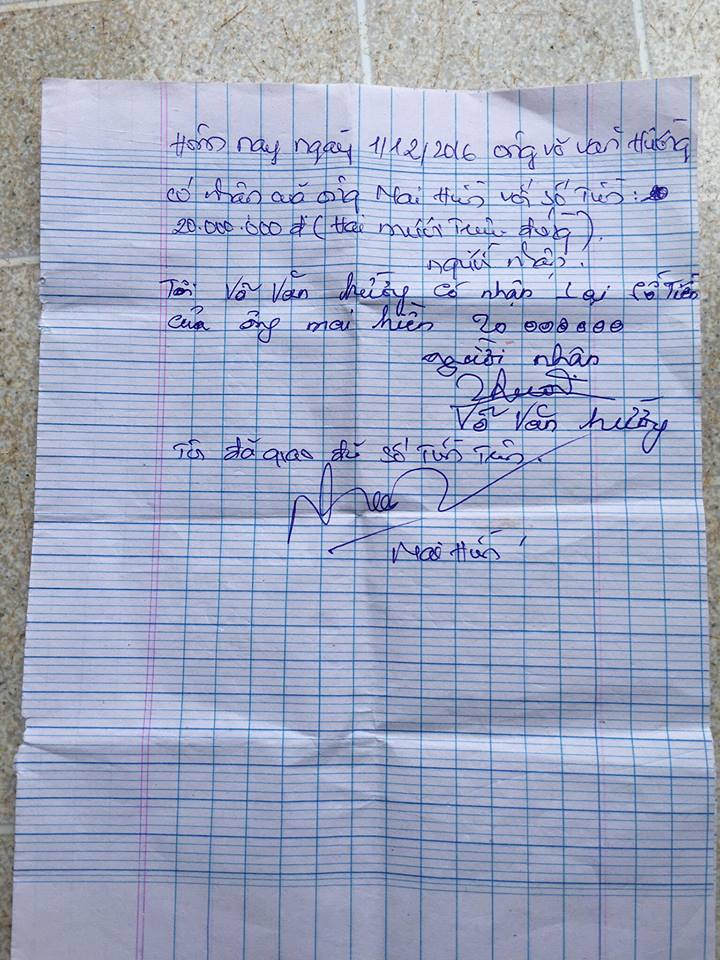 Hôm nay ngày 1/12/2016 ông võ văn Hưởng
có nhận của ông Mai Hiền với số tiền:
20.000.000 đ (Hai mươi Triệu đồng).
người nhận.
Tôi Võ Văn hưởng có nhận Lại số Tiền
của ông mai hiền 20 000000
người nhận
Võ Văn hưởng
Tôi đã giao đủ số tiền Trên.
Mai Hiền